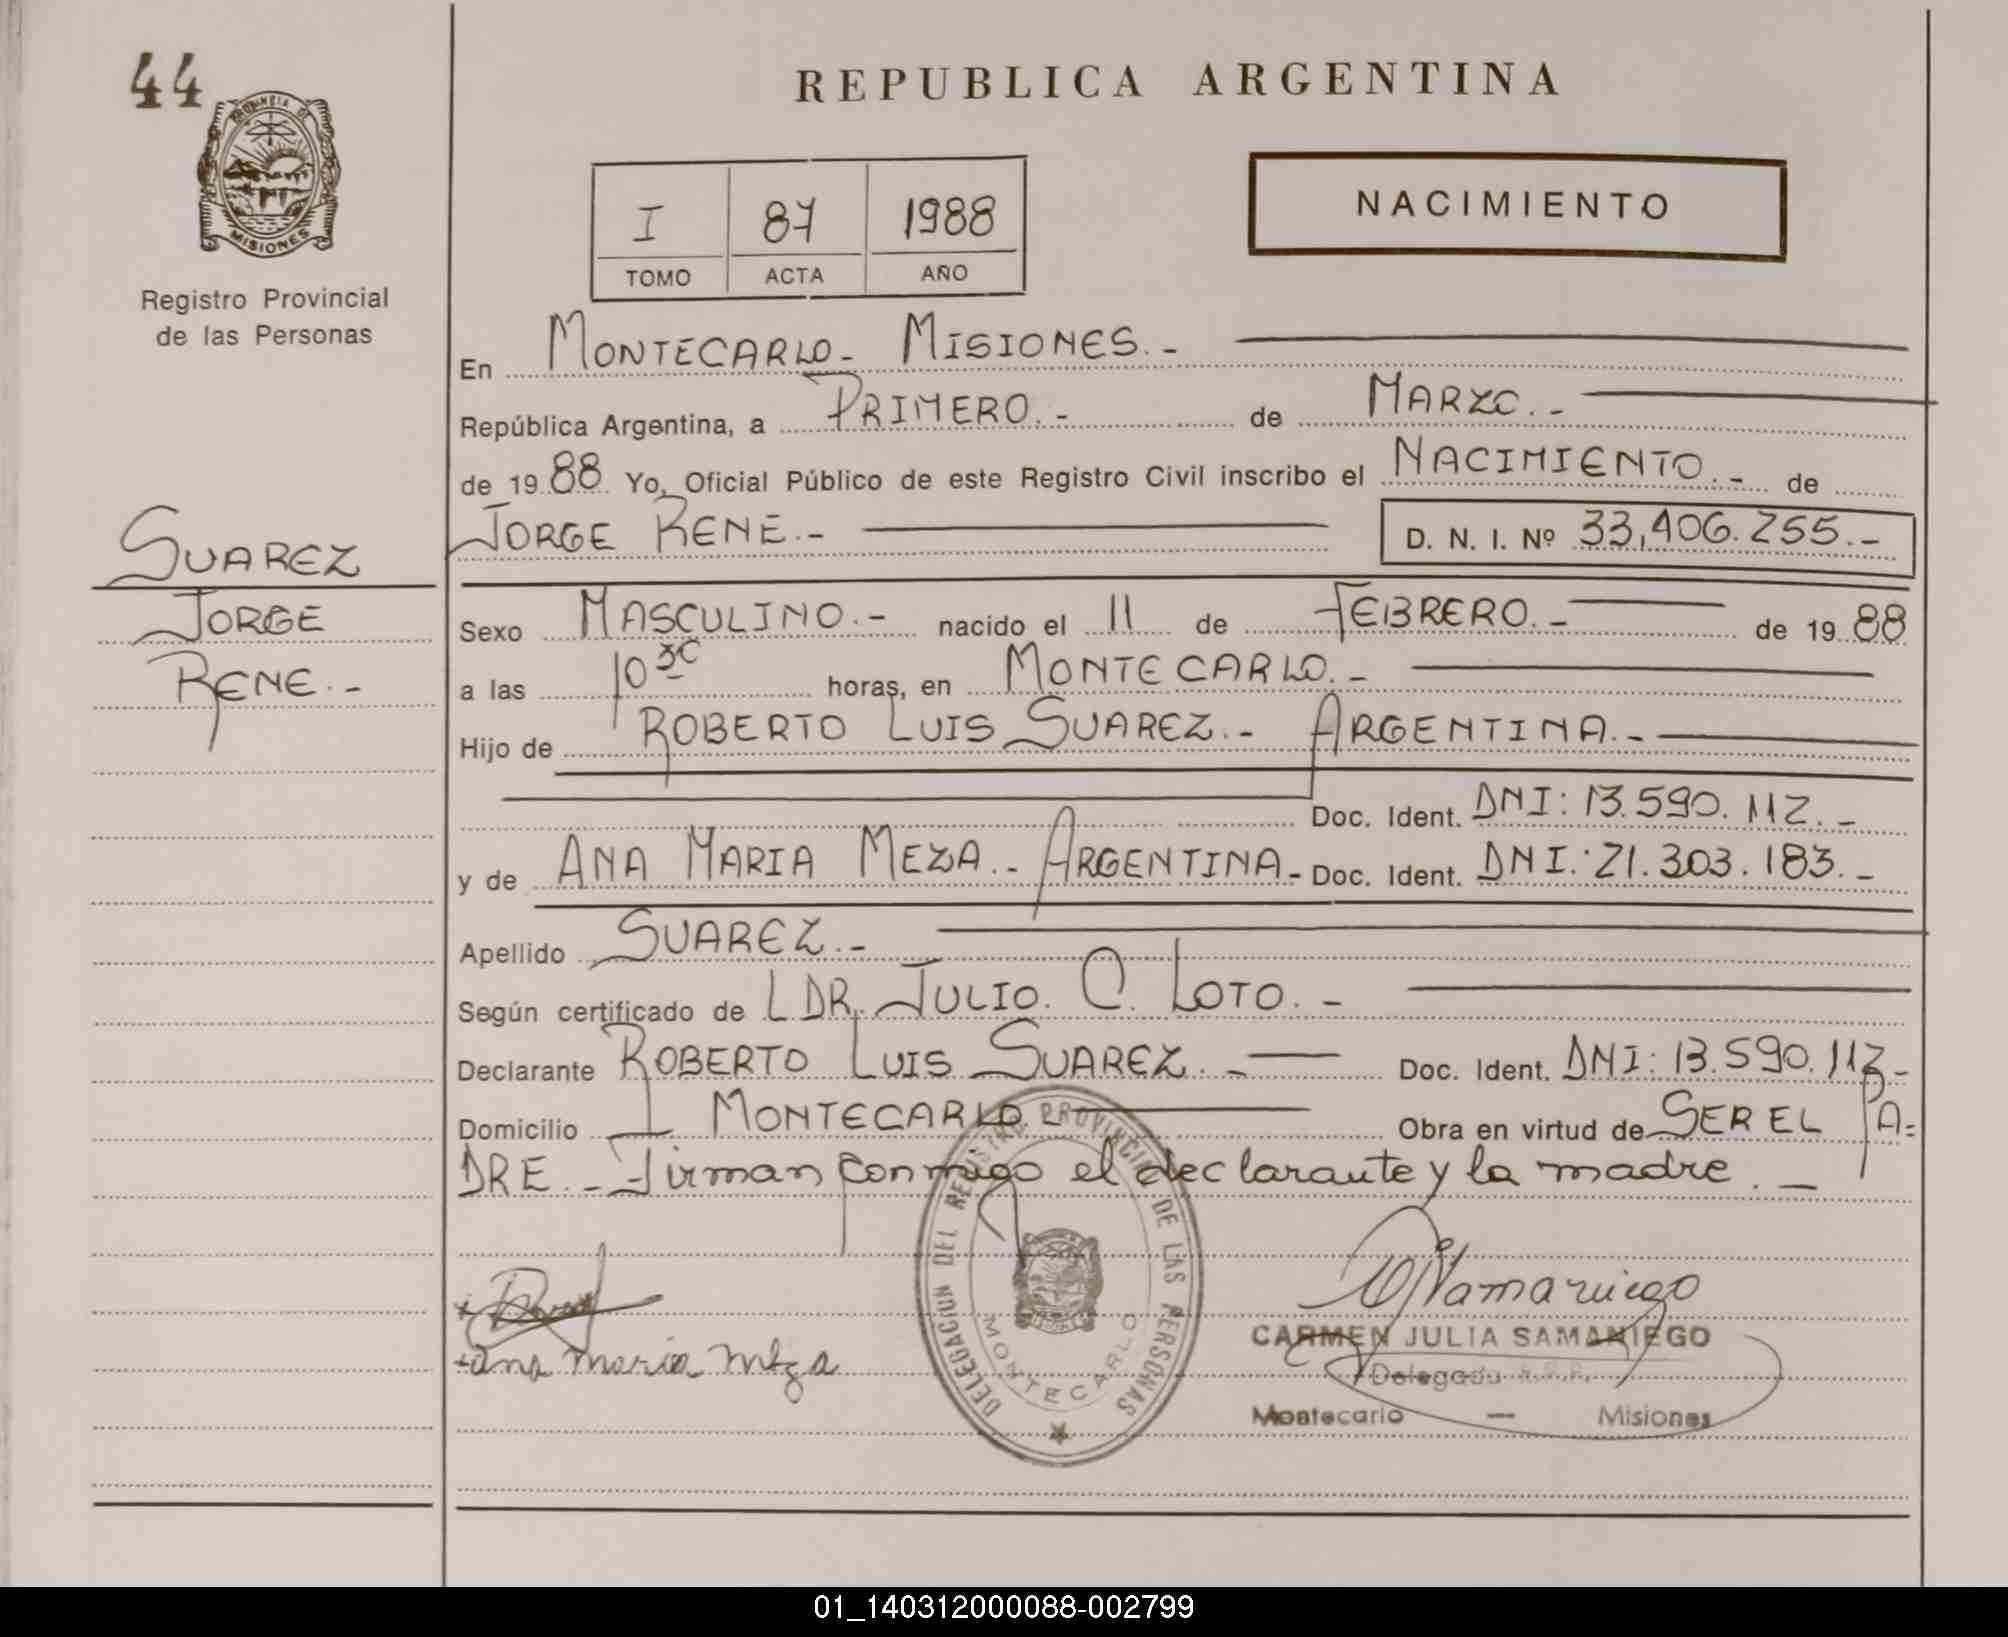 44
PROVINCIA DE
MISIONES
Registro Provincial
de las Personas
REPUBLICA ARGENTINA
NACIMIENTO
I 87 1988
TOMO ACTA AÑO
En MONTECARLO - MISIONES.-
República Argentina, a PRIMERO.- de MARZO.-
de 1988 Yo, Oficial Público de este Registro Civil inscribo el NACIMIENTO.- de
JORGE RENE.- D. N. I. Nº 33,406.255.-
SUAREZ
JORGE
RENE.-
Sexo MASCULINO.- nacido el 11 de FEBRERO.- de 1988
a las 10 30 horas, en MONTECARLO.-
Hijo de ROBERTO LUIS SUAREZ.- ARGENTINA.-
Doc. Ident. DNI: 13.590.112.-
y de ANA MARIA MEZA.- ARGENTINA- Doc. Ident. DNI: 21.303.183.-
Apellido SUAREZ.-
Según certificado de L DR. JULIO. C. LOTO.-
Declarante ROBERTO LUIS SUAREZ.- Doc. Ident. DNI: 13.590.112-
Domicilio MONTECARLO Obra en virtud de SER EL PA=
DRE.- Firman conmigo el declarante y la madre.-
+ana maria meza
DELEGACION DEL REGISTRO PROVINCIAL DE LAS PERSONAS
MONTECARLO
CARMEN JULIA SAMANIEGO
Delegada R.P.P.
Montecarlo — Misiones
01_140312000088-002799